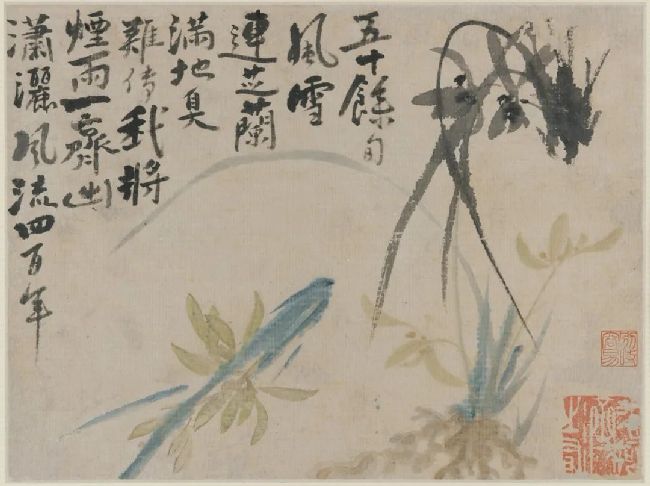 五十餘旬
風雪
連芝蘭
滿地真
難傳我將
煙雨一齊出
瀟灑風流四百年